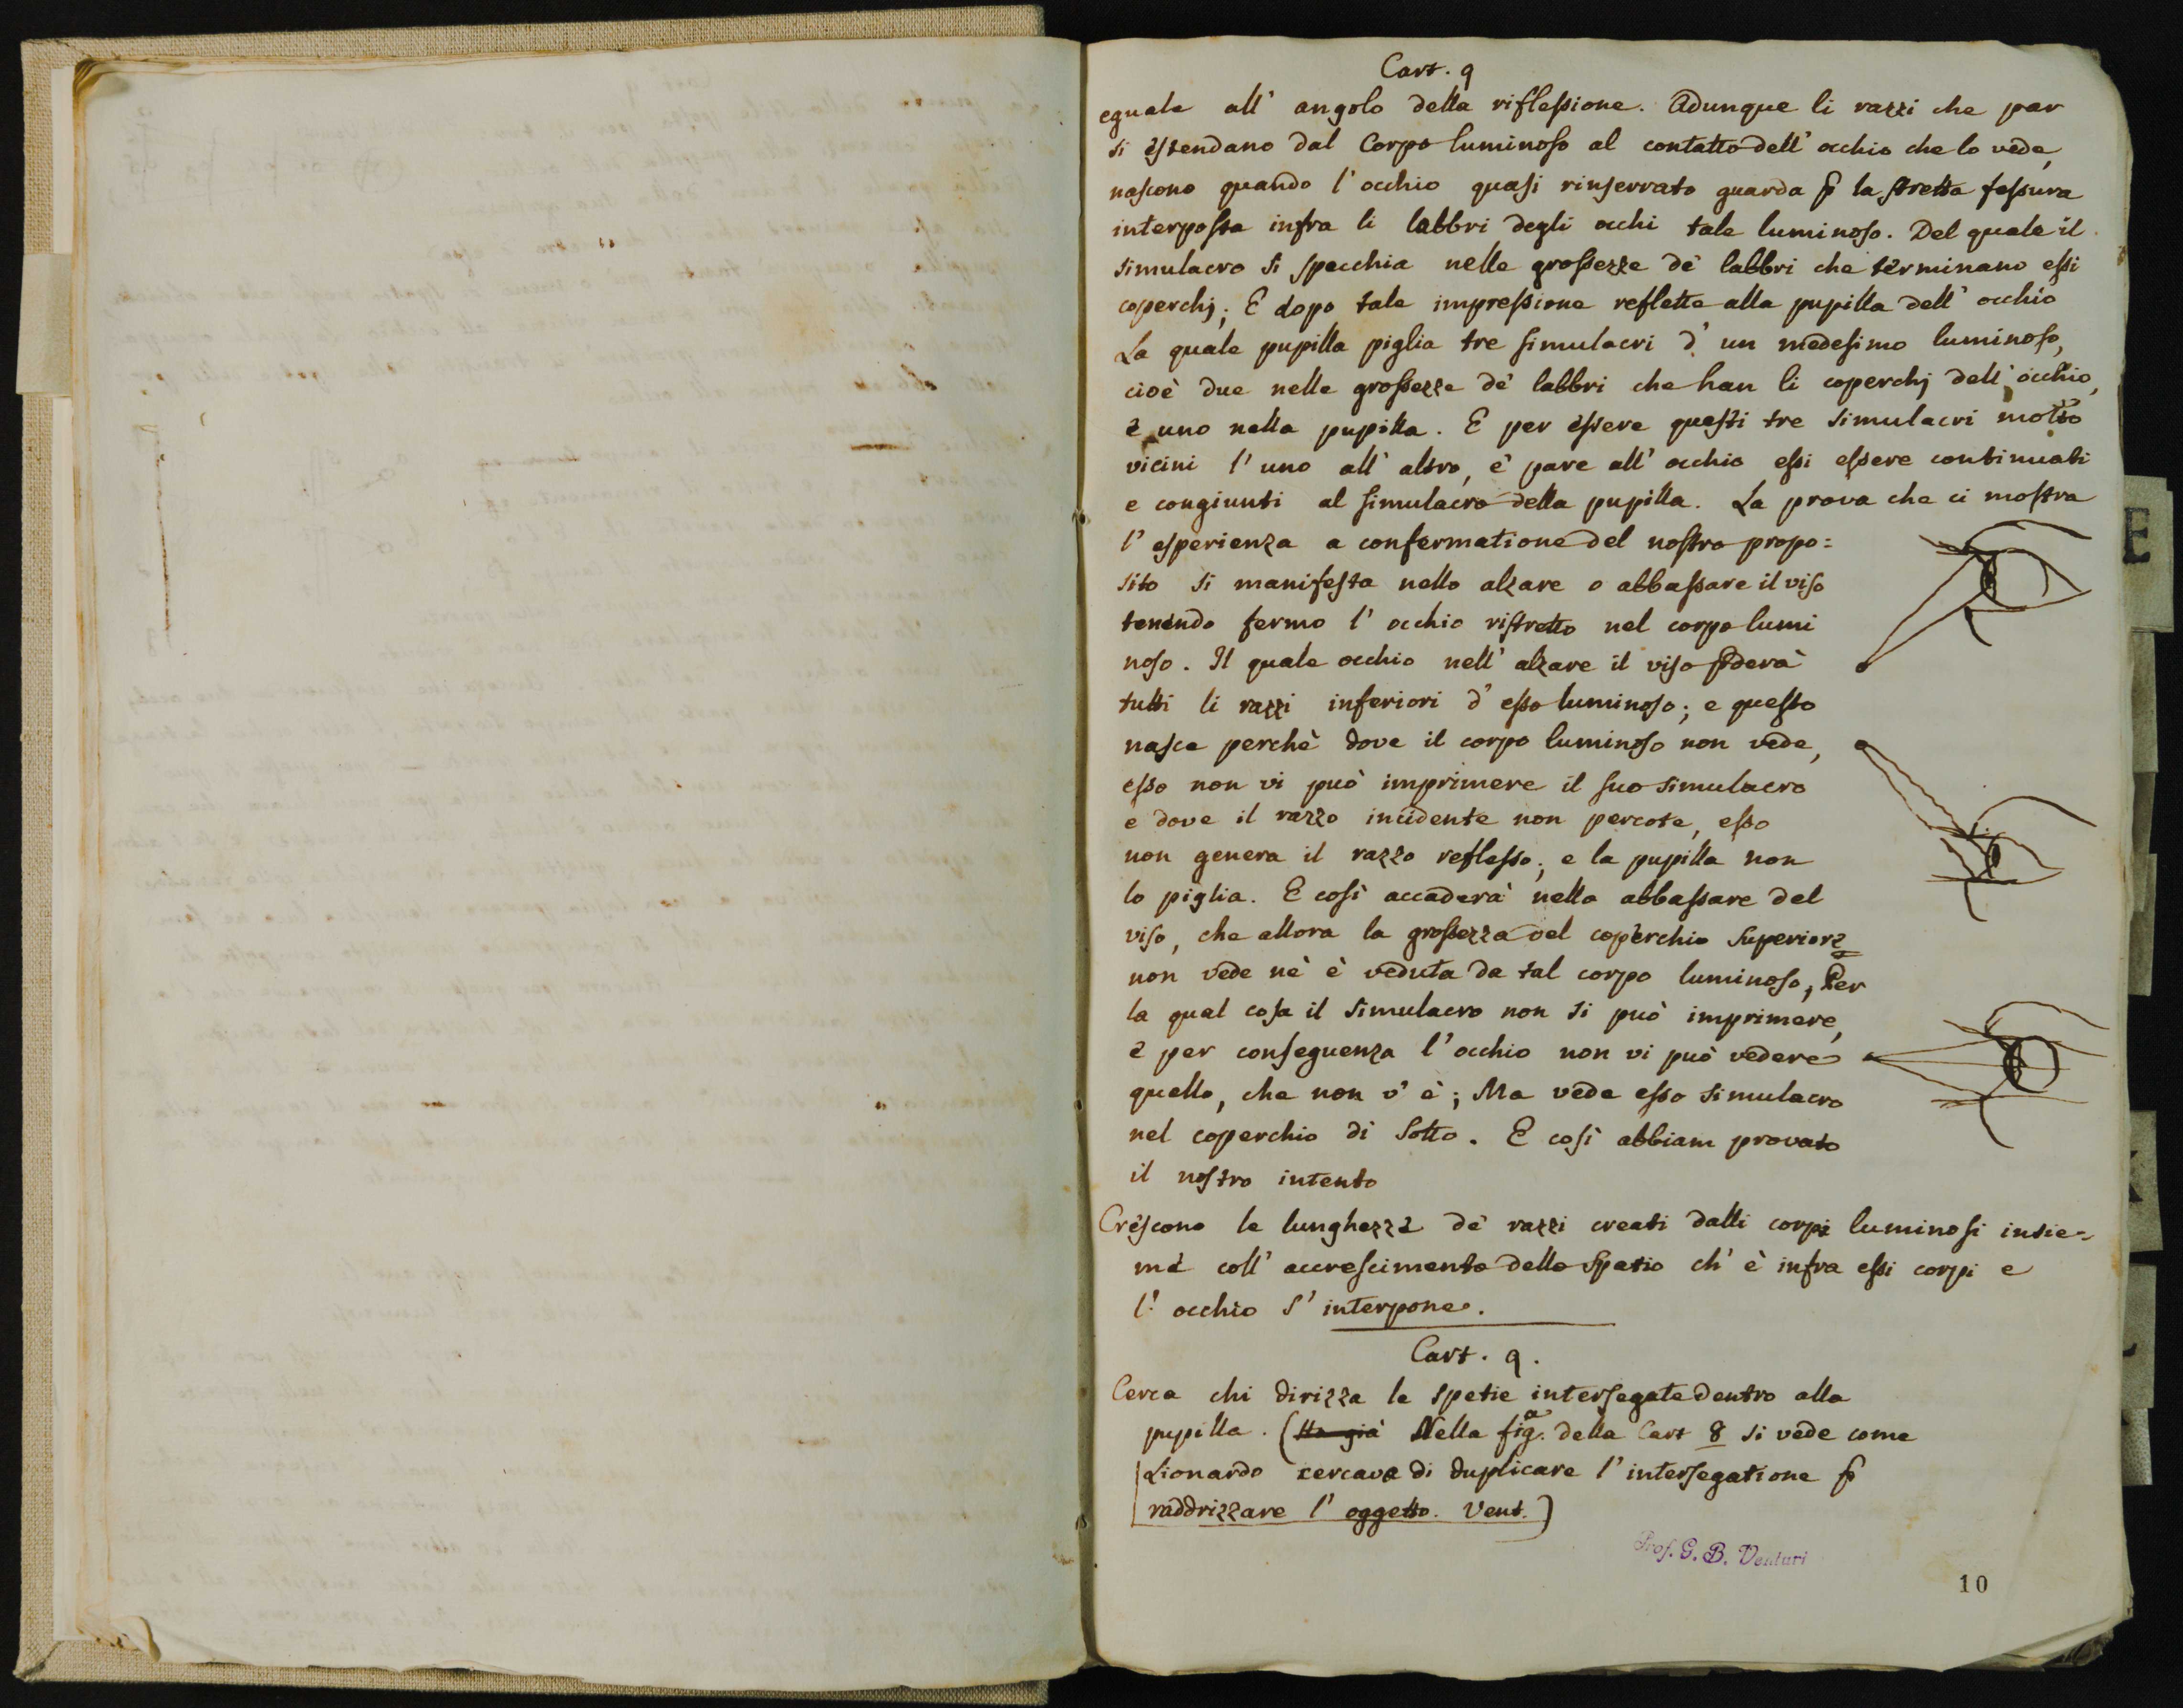 Cart. 9
eguale all' angolo della riflessione. Adunque li razzi che par
si estendano dal Corpo luminoso al contatto dell' occhio che lo vede,
nascono quando l' occhio quasi rinserrato guarda ꝑ la stretta fessura
interposta infra li labbri degli occhi tale luminoso. Del quale il
simulacro si specchia nelle grossezze de' labbri che terminano essi
coperchj; E dopo tale impressione reflette alla pupilla dell' occhio
La quale pupilla piglia tre simulacri d' un medesimo luminoso,
cioè due nelle grossezze de' labbri che han li coperchj dell' occhio,
e uno nella pupilla. E per essere questi tre simulacri molto
vicini l' uno all' altro, e' pare all' occhio essi essere continuati
e congiunti al simulacro della pupilla. La prova che ci mostra
l' esperienza a confermatione del nostro propo=
sito si manifesta nello alzare o abbassare il viso
tenendo fermo l' occhio ristretto nel corpo lumi
noso. Il quale occhio nell' alzare il viso ꝑderà
tutti li razzi inferiori d' esso luminoso; e questo
nasce perchè dove il corpo luminoso non vede,
esso non vi può imprimere il suo simulacro
e dove il razzo incidente non percote, esso
non genera il razzo reflesso; e la pupilla non
lo piglia. E così accaderà nello abbassare del
viso, che allora la grossezza del coperchio superiore
non vede nè è veduta da tal corpo luminoso, Per
la qual cosa il simulacro non si può imprimere,
e per conseguenza l' occhio non vi può vedere
quello, che non v' è; Ma vede esso simulacro
nel coperchio di sotto. E così abbiam provato
il nostro intento
Crescono le lunghezze de' razzi creati dalli corpi luminosi insie=
me coll' accrescimento dello Spatio ch' è infra essi corpi e
l' occhio s' interpone.
Cart. 9.
Cerca chi dirizza le spetie intersegate dentro alla
pupilla. (Ha già Nella fig.ª della Cart 8 si vede come
Lionardo cercava di duplicare l' intersegatione ꝑ
raddrizzare l' oggetto. Vent.)
Prof. G. B. Venturi
10
E